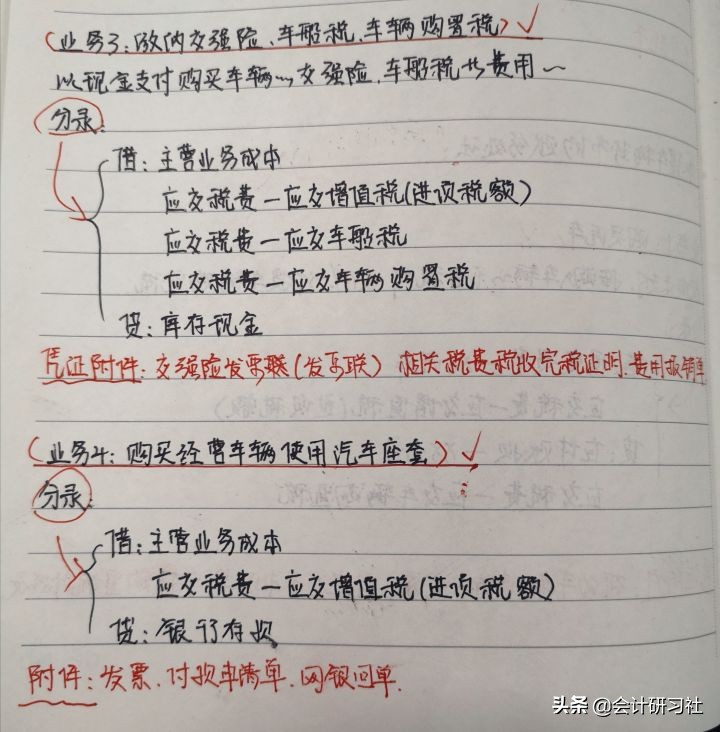 (业务3:缴纳交强险、车船税、车辆购置税)✓
以现金支付购买车辆~交强险、车船税共费用~
分录:
借:主营业务成本
应交税费—应交增值税(进项税额)
应交税费—应交车船税
应交税费—应交车辆购置税
贷:库存现金
凭证附件:交强险发票联(发票联) 相关税费税收完税证明、费用报销单
(业务4:购买经营车辆使用汽车座套)✓
分录:
借:主营业务成本
应交税费—应交增值税(进项税额)
贷:银行存款
附件:发票、付款申请单、网银回单.
头条 @会计研习社